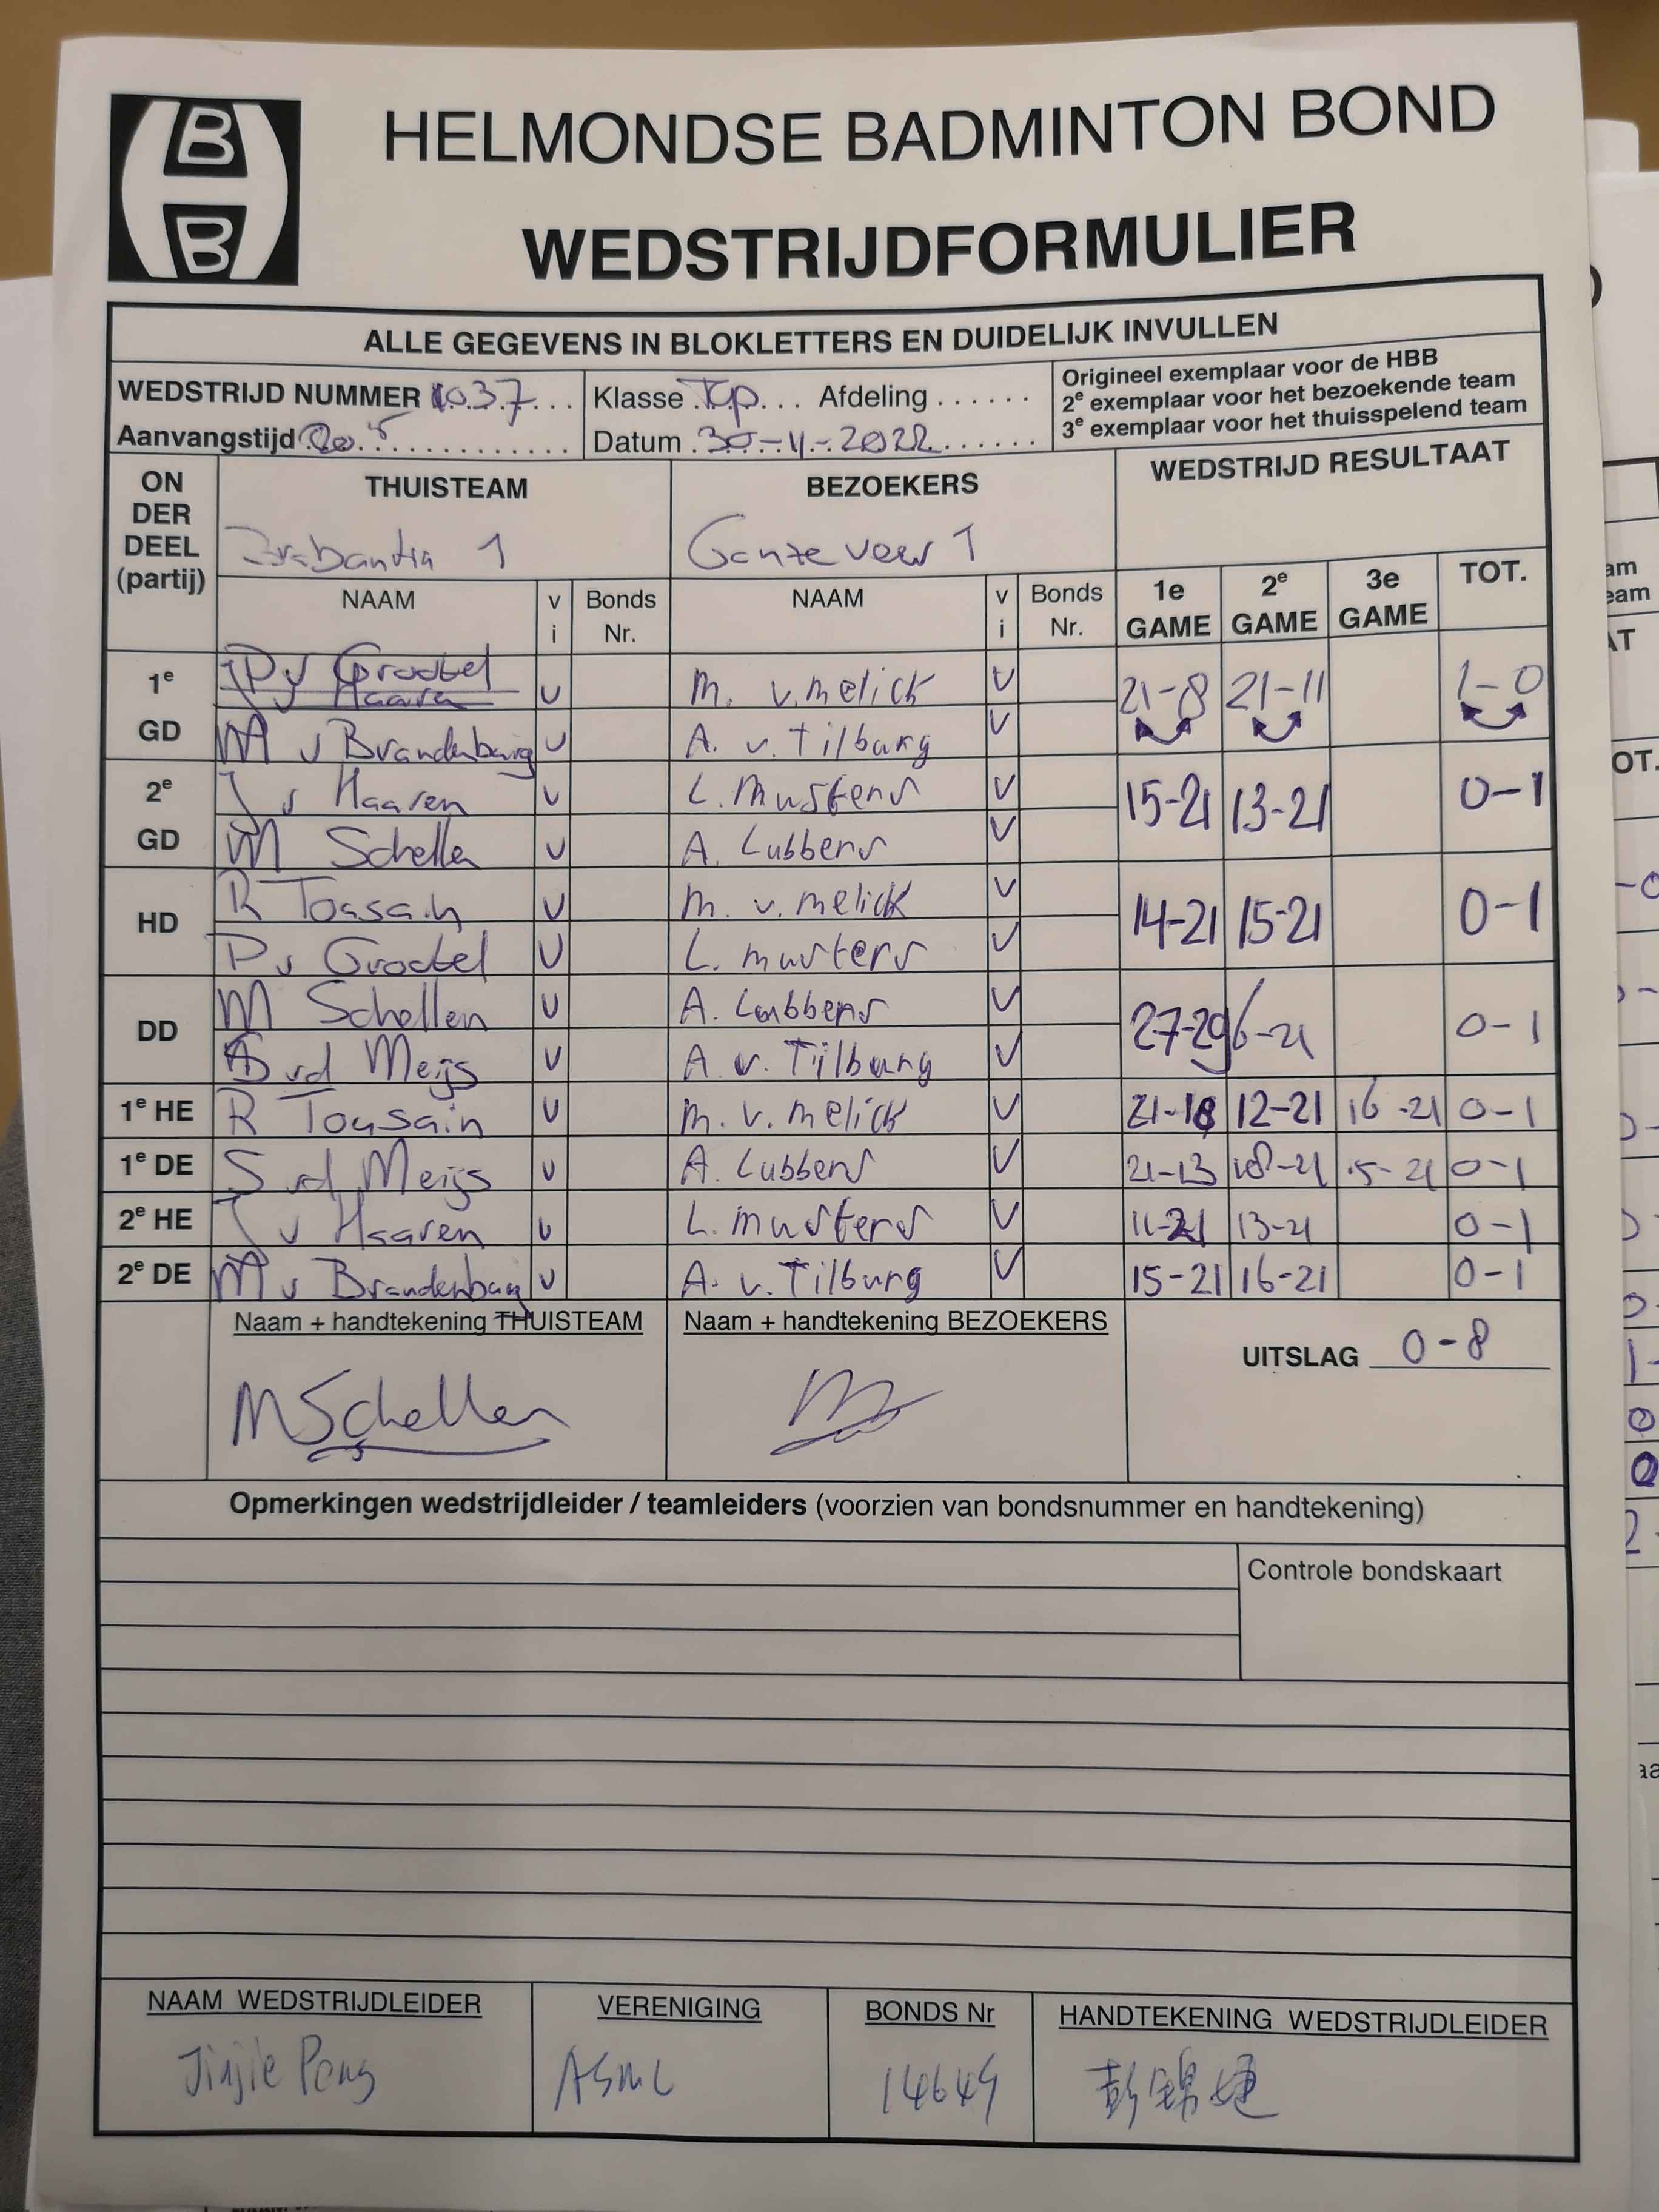 B
B
HELMONDSE BADMINTON BOND
WEDSTRIJDFORMULIER
ALLE GEGEVENS IN BLOKLETTERS EN DUIDELIJK INVULLEN
WEDSTRIJD NUMMER 1037 Klasse Top Afdeling
Origineel exemplaar voor de HBB
2e exemplaar voor het bezoekende team
3e exemplaar voor het thuisspelend team
Aanvangstijd Datum 30-11-2022
ON DER DEEL (partij) THUISTEAM BEZOEKERS WEDSTRIJD RESULTAAT
Brabantia 1 Ganzeveer 1
NAAM vi Bonds Nr. NAAM vi Bonds Nr. 1e GAME 2e GAME 3e GAME TOT.
1e GD P v Grootel v M. v. melick v 21-8 21-11 1-0
M v Brandenburg v A. v. Tilburg v
2e GD J v Haaren v L. Musters v 15-21 13-21 0-1
M Schellen v A. Lubbers v
HD R Tousain v M. v. melick v 14-21 15-21 0-1
P v Grootel v L. musters v
DD M Schellen v A. Lubbers v 27-29 6-21 0-1
S vd Meijs v A v. Tilburg v
1e HE R Tousain v M. v. melick v 21-18 12-21 16-21 0-1
1e DE S vd Meijs v A. Lubbers v 21-13 18-21 15-21 0-1
2e HE J v Haaren v L. musters v 11-21 13-21 0-1
2e DE M v Brandenburg v A. v. Tilburg v 15-21 16-21 0-1
Naam + handtekening THUISTEAM Naam + handtekening BEZOEKERS UITSLAG 0-8
MSchellen
Opmerkingen wedstrijdleider / teamleiders (voorzien van bondsnummer en handtekening)
Controle bondskaart
NAAM WEDSTRIJDLEIDER VERENIGING BONDS Nr HANDTEKENING WEDSTRIJDLEIDER
Jinjie Peng ASML 14649 彭锦婕